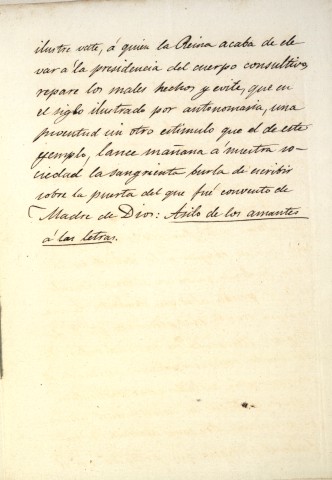 ilustre vate, á quien la Reina acaba de ele
var a la presidencia del cuerpo consultivo,
repare los males hechos y evite, que en
el siglo ilustrado por antonomasia, una
juventud sin otro estimulo que el de este
ejemplo, lance mañana á nuestra so-
ciedad la sangrienta burla de escribir
sobre la puerta del que fué convento de
Madre de Dios: Asilo de los amantes
á las letras.